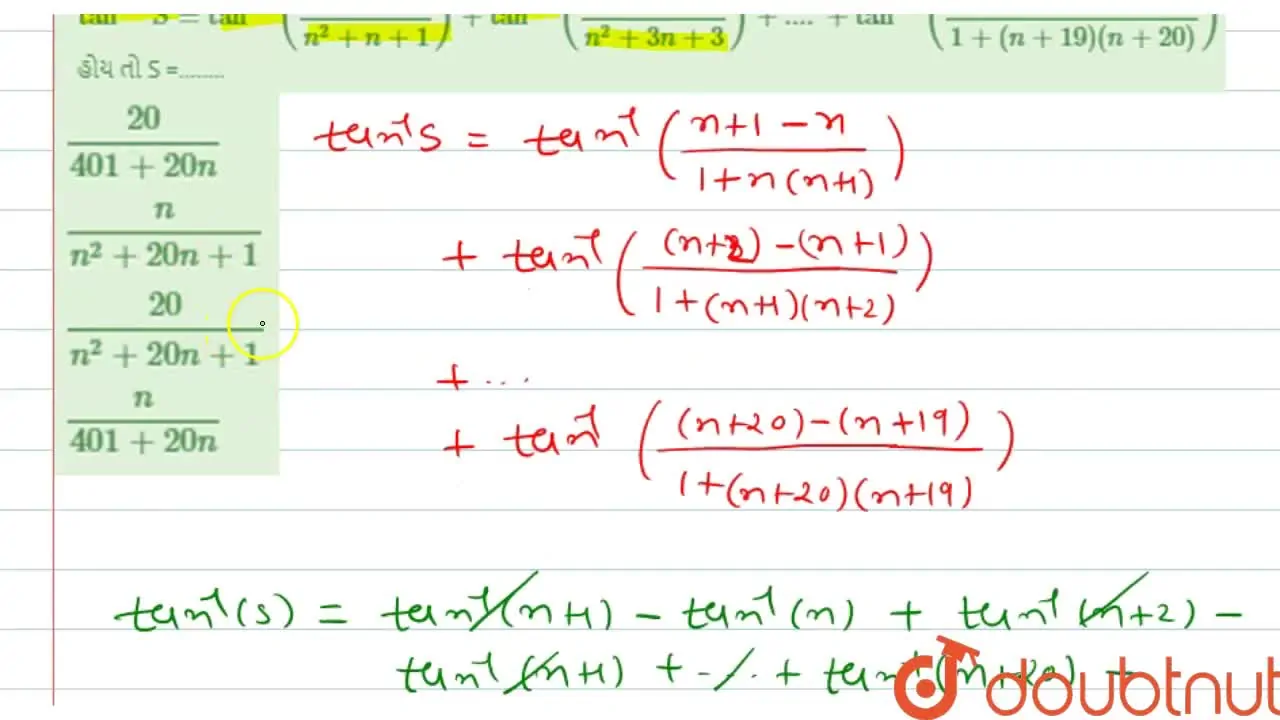 tan⁻¹ S = tan⁻¹ (/(n² + n + 1)) + tan⁻¹ (/(n² + 3n + 3)) + .... + tan⁻¹ (/(1 + (n + 19)(n + 20)))
હોય તો S =.........
20/(401 + 20n)
n/(n² + 20n + 1)
20/(n² + 20n + 1)
n/(401 + 20n)
tan⁻¹S = tan⁻¹ ((n+1 - n)/(1+n(n+1)))
+ tan⁻¹ (((n+2) - (n+1))/(1+(n+1)(n+2)))
+ ...
+ tan⁻¹ (((n+20) - (n+19))/(1+(n+20)(n+19)))
tan⁻¹(s) = tan⁻¹(n+1) - tan⁻¹(n) + tan⁻¹(n+2) -
tan⁻¹(n+1) + ... + tan⁻¹(n+20) -
doubtnut